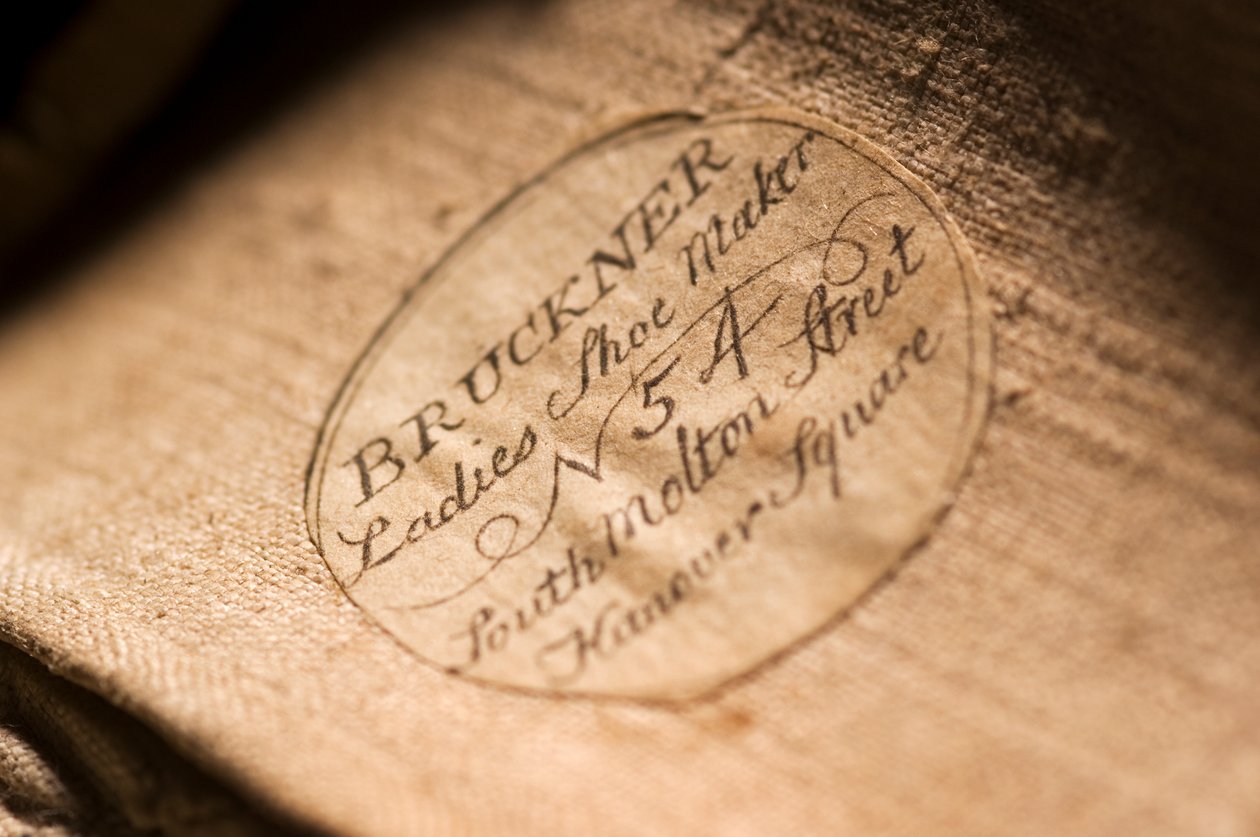 BRUCKNER
Ladies Shoe Maker
N 54
South Molton Street
Hanover Square